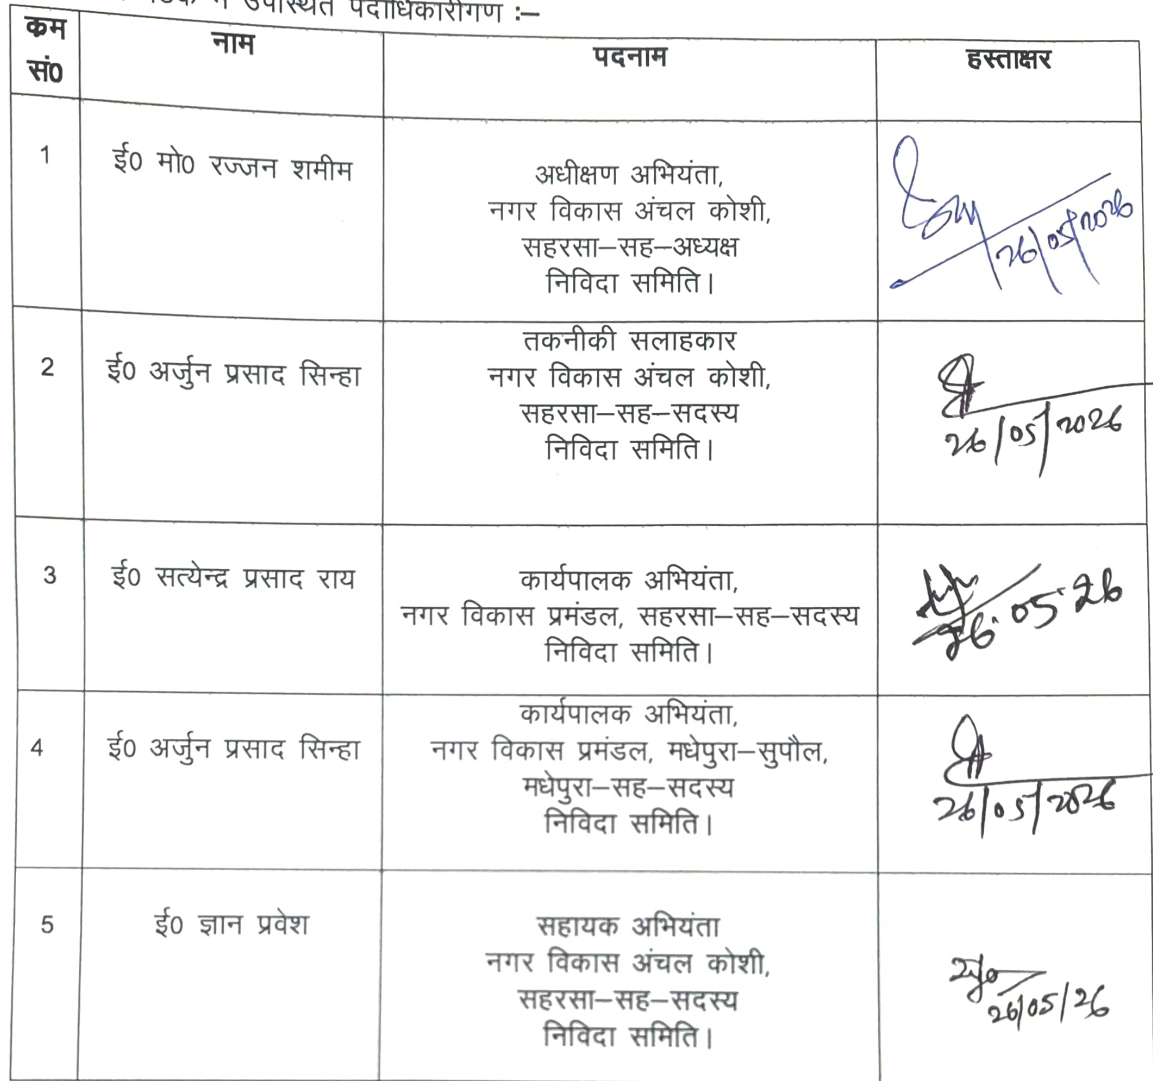 में उपस्थित पदाधिकारीगण :–
कम सं0 नाम पदनाम हस्ताक्षर
1 ई0 मो0 रज्जन शमीम
अधीक्षण अभियंता,
नगर विकास अंचल कोशी,
सहरसा–सह–अध्यक्ष
निविदा समिति।
26/05/2026
2 ई0 अर्जुन प्रसाद सिन्हा
तकनीकी सलाहकार
नगर विकास अंचल कोशी,
सहरसा–सह–सदस्य
निविदा समिति।
26/05/2026
3 ई0 सत्येन्द्र प्रसाद राय
कार्यपालक अभियंता,
नगर विकास प्रमंडल, सहरसा–सह–सदस्य
निविदा समिति।
26.05.26
4 ई0 अर्जुन प्रसाद सिन्हा
कार्यपालक अभियंता,
नगर विकास प्रमंडल, मधेपुरा–सुपौल,
मधेपुरा–सह–सदस्य
निविदा समिति।
26/05/2026
5 ई0 ज्ञान प्रवेश
सहायक अभियंता
नगर विकास अंचल कोशी,
सहरसा–सह–सदस्य
निविदा समिति।
26/05/26